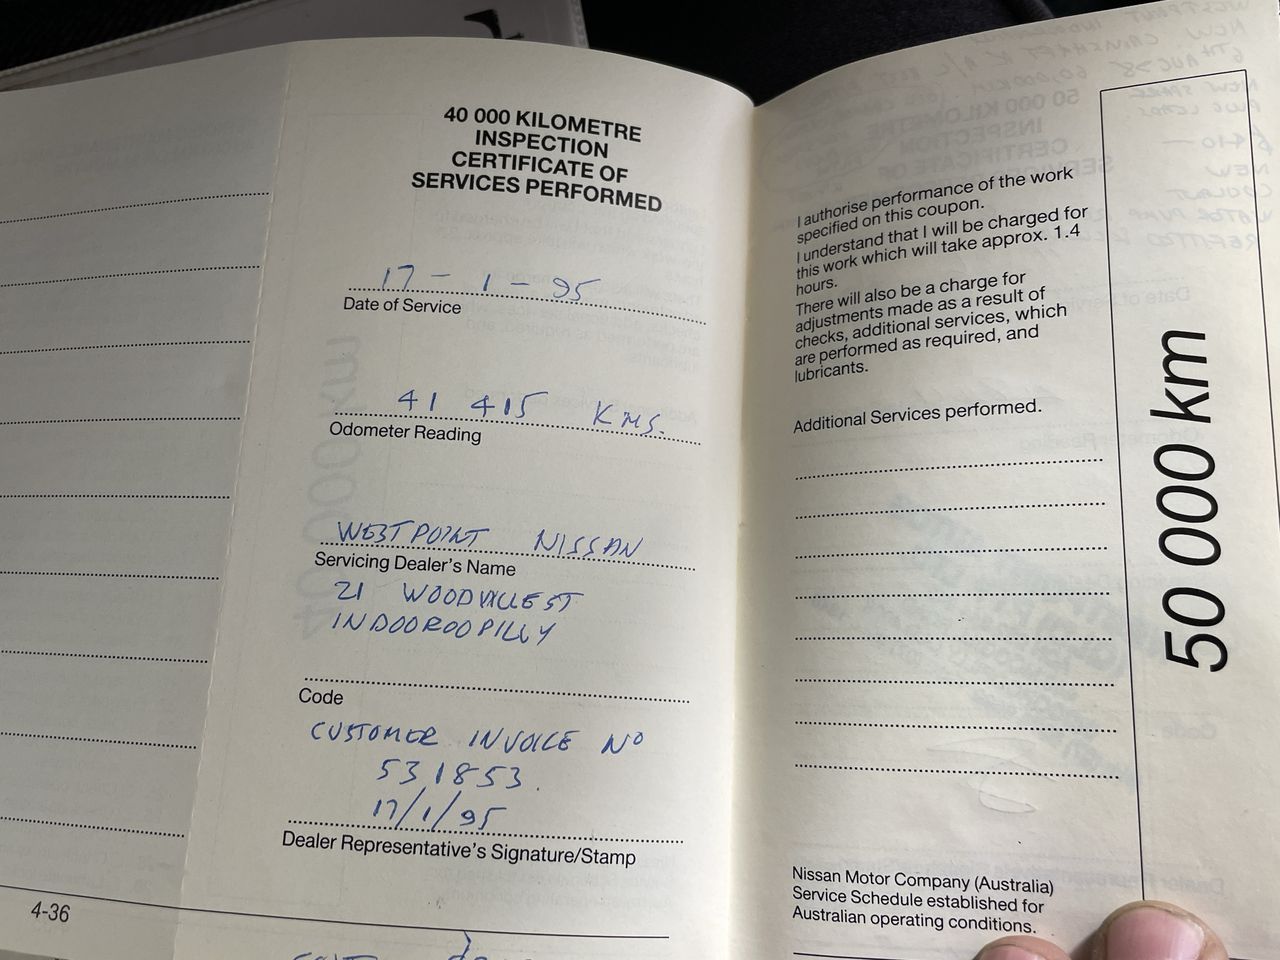 40 000 KILOMETRE
INSPECTION
CERTIFICATE OF
SERVICES PERFORMED
17 - 1 - 95
Date of Service
41 415 KMS.
Odometer Reading
WESTPOINT NISSAN
Servicing Dealer's Name
21 WOODVILLE ST
INDOOROOPILLY
Code
CUSTOMER INVOICE No
531853.
17/1/95
Dealer Representative's Signature/Stamp
4-36
I authorise performance of the work
specified on this coupon.
I understand that I will be charged for
this work which will take approx. 1.4
hours.
There will also be a charge for
adjustments made as a result of
checks, additional services, which
are performed as required, and
lubricants.
Additional Services performed.
Nissan Motor Company (Australia)
Service Schedule established for
Australian operating conditions.
50 000 km